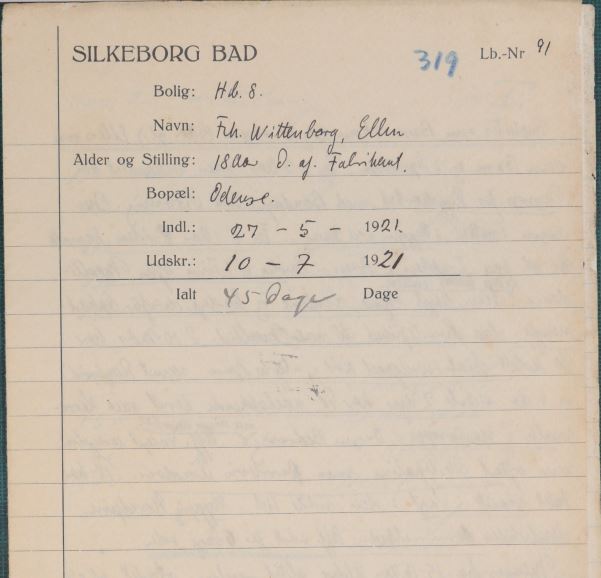 SILKEBORG BAD 319 Lb.-Nr 91
Bolig: Hd. 8.
Navn: Frk. Wittenborg, Ellen
Alder og Stilling: 18 Aar D. af Fabrikant.
Bopæl: Odense.
Indl.: 27 - 5 - 1921.
Udskr.: 10 - 7 1921
Ialt 45 Dage Dage